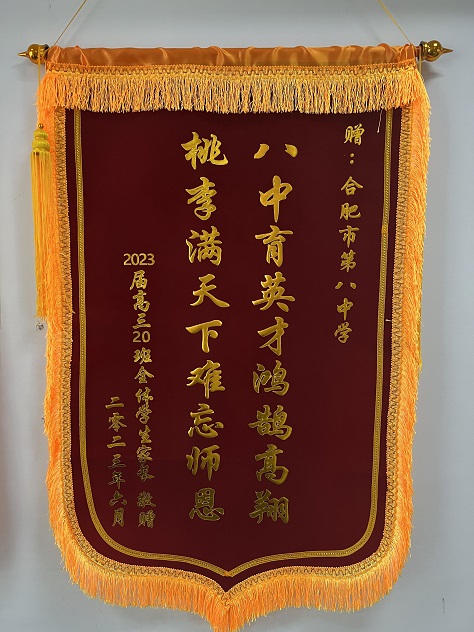 赠：合肥市第八中学
八中育英才鸿鹄高翔
桃李满天下难忘师恩
2023届高三20班全体学生家长 敬赠
二零二三年六月